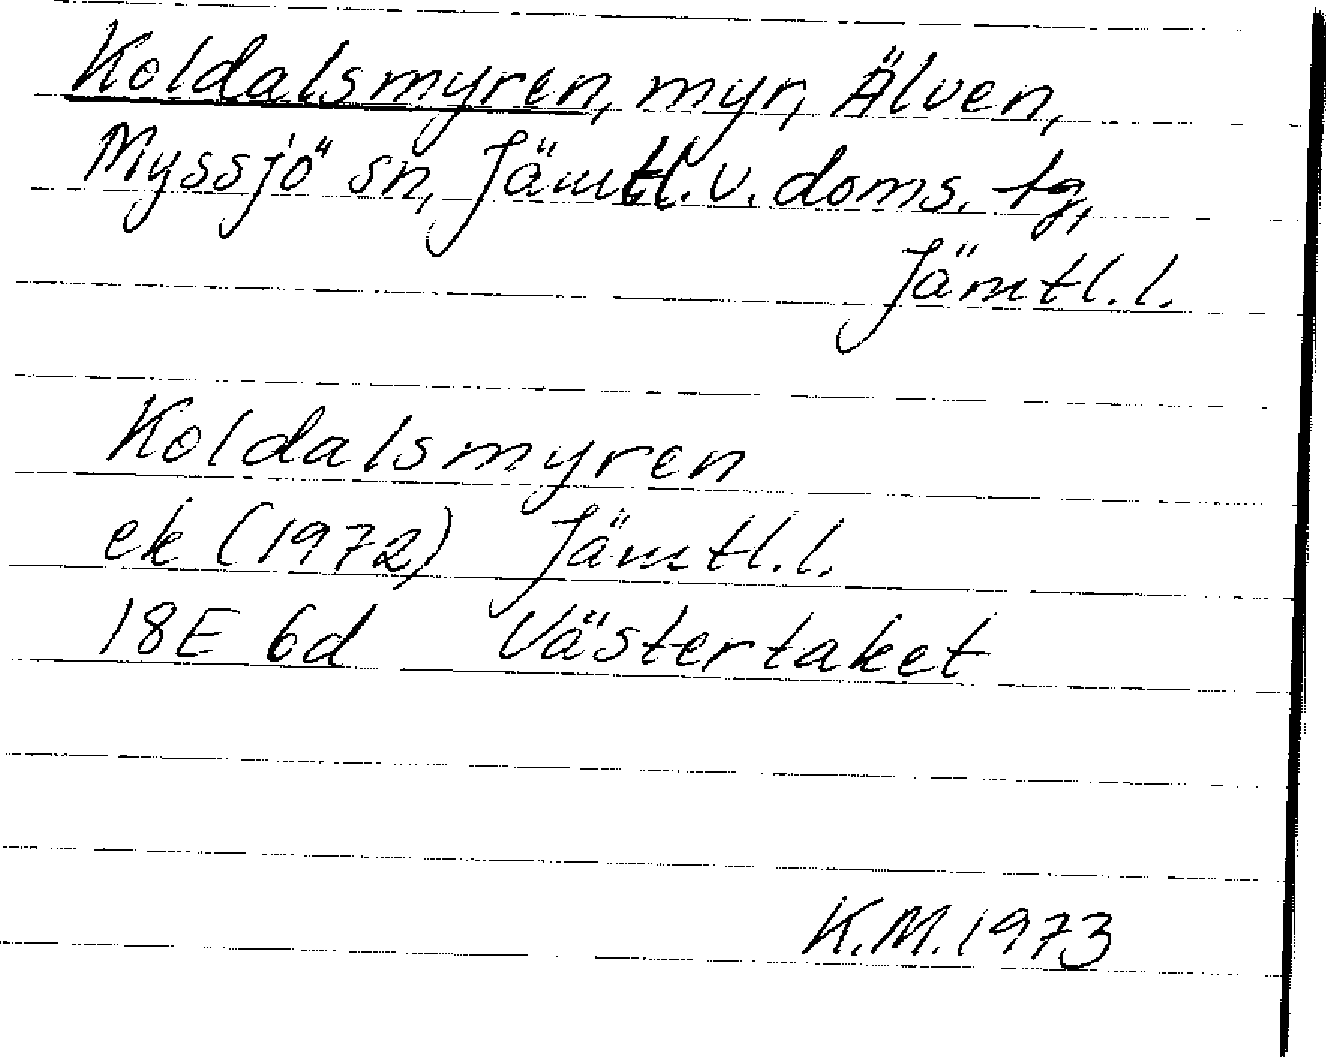 Koldalsmyren, myr, Älven,
Myssjö sn, Jämtl. v. doms. tg,
Jämtl. l.
Koldalsmyren
ek (1972) Jämtl. l.
18E 6d Västertaket
K.M. 1973